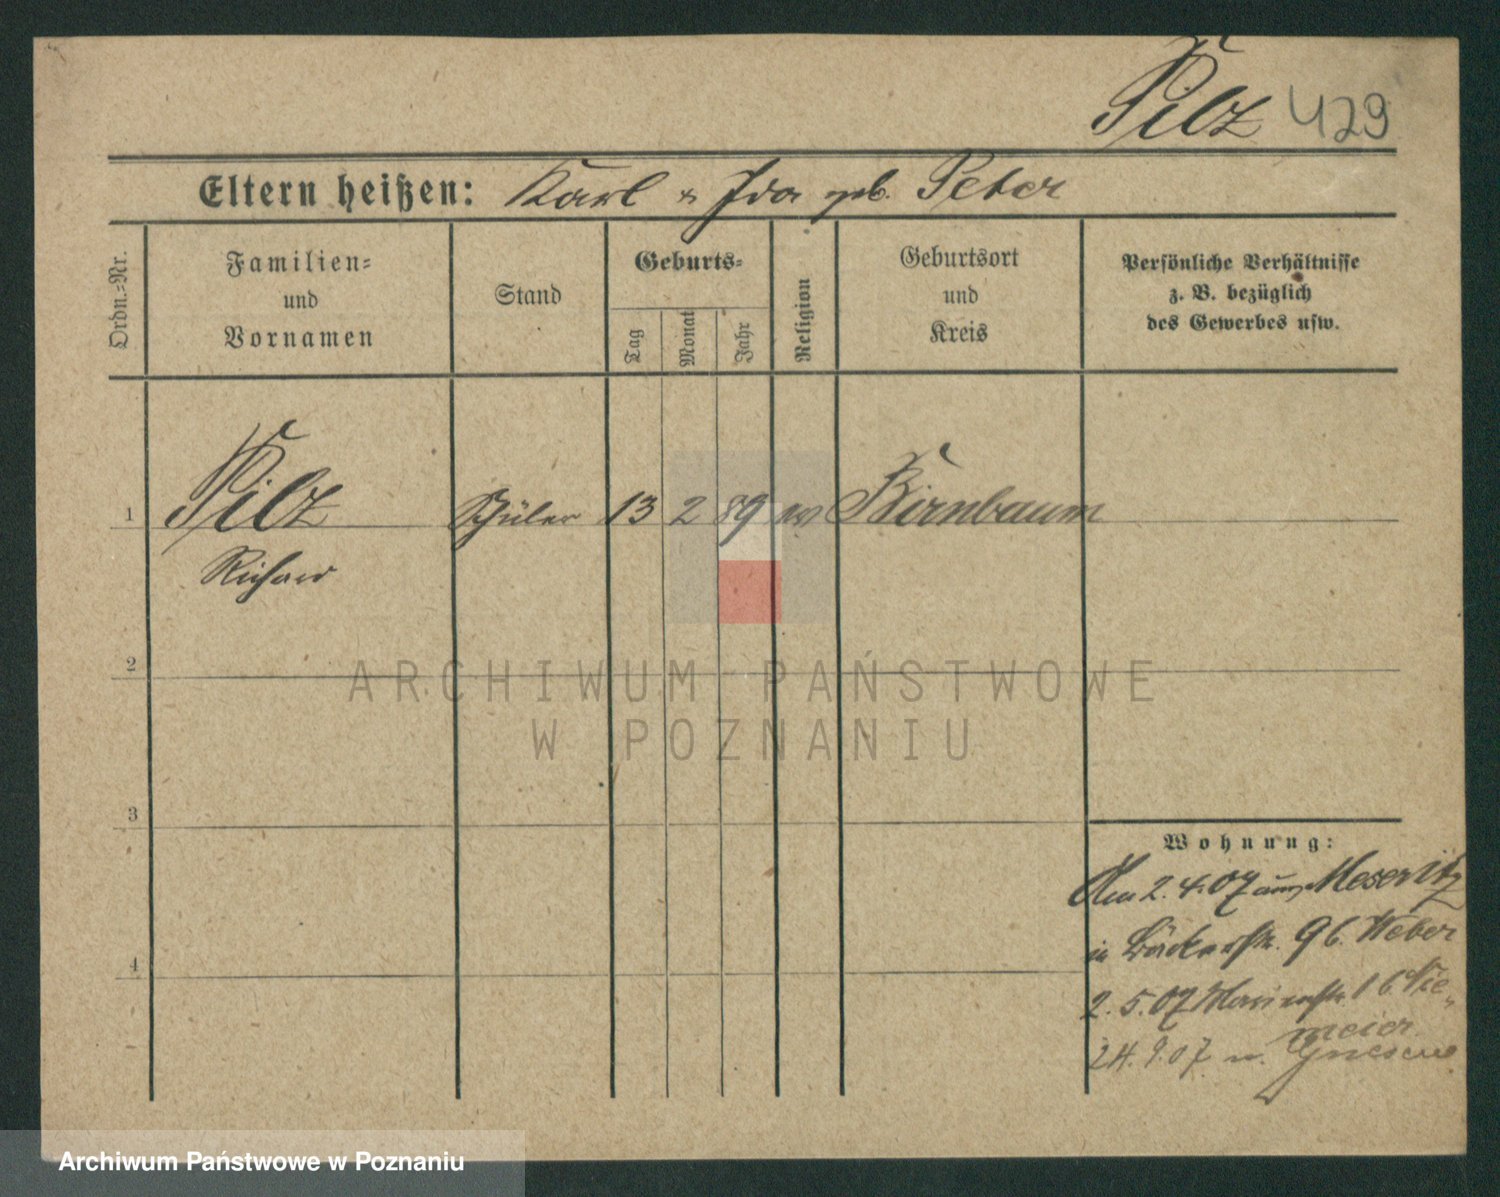 Pilz 429
Eltern heißen: Karl u Ida geb. Peter
Ordn.-Nr.
Familien-
und
Vornamen
Stand
Geburts-
Tag
Monat
Jahr
Religion
Geburtsort
und
Kreis
Persönliche Verhältnisse
z. B. bezüglich
des Gewerbes usw.
1 Pilz Schüler 13 2 89 ev Birnbaum
Richard
2
3
4
Wohnung:
Am 2.4.07 aus Meseritz
in Bäckerstr. 9b. Weber
2.5.07 Marienstr. 16 Nie-
meier
24.9.07 n. Gnesen
ARCHIWUM PAŃSTWOWE
W POZNANIU
Archiwum Państwowe w Poznaniu